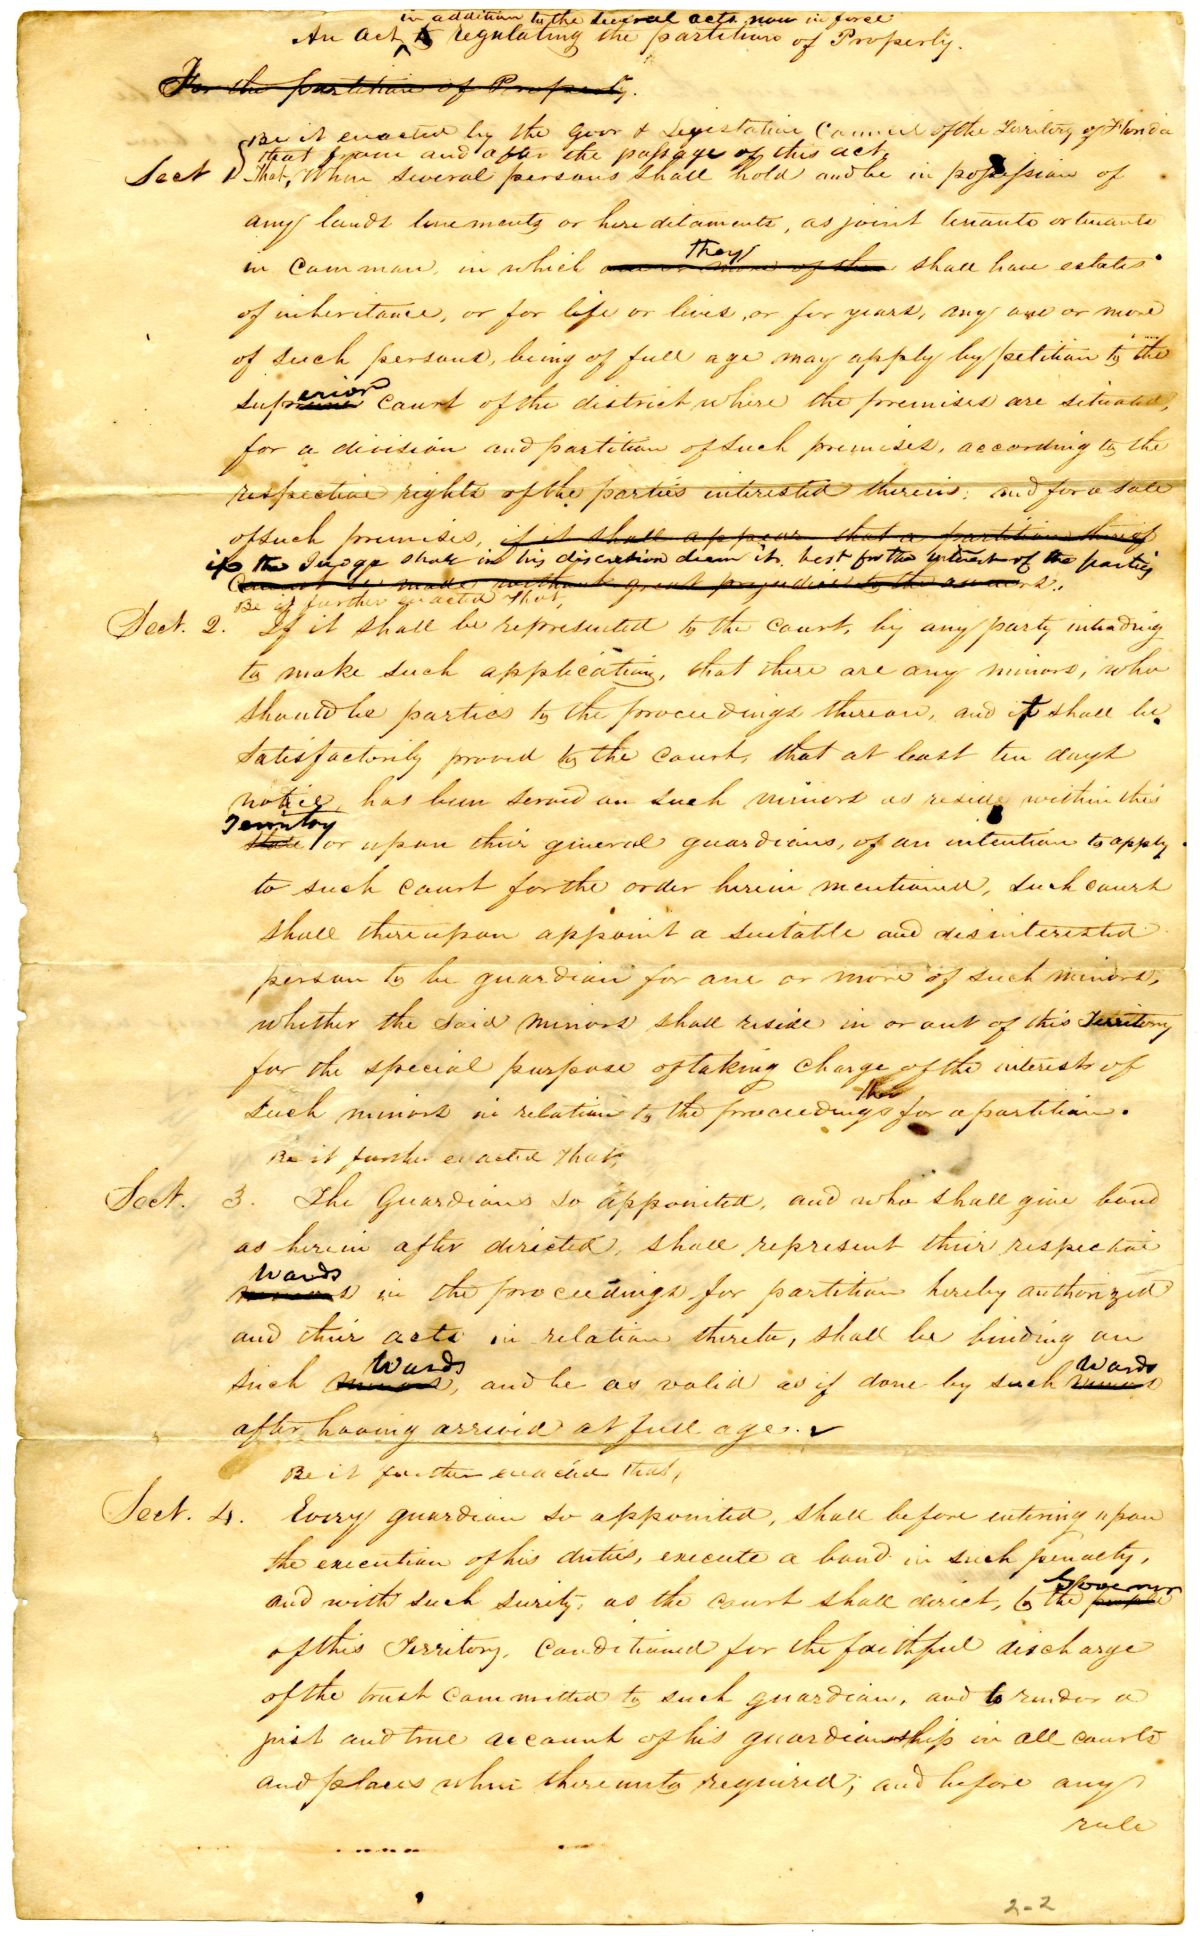 in addition to the several acts now in force
An act regulating the partition of Property.
For the partition of Property.
Be it enacted by the Govr & Legislative Council of the Territory of Florida
that from and after the passage of this act,
Sect 1. That, When several persons shall hold and be in possession of
any lands tenements or hereditaments, as joint tenants or tenants
they
in common, in which one or more of them shall have estates
of inheritance, or for life or lives, or for years, any one or more
of such persons, being of full age may apply by petition to the
erior
supreme court of the district where the premises are situated,
for a division and partition of such premises, according to the
respective rights of the parties interested therein; and for a sale
of such premises, if it shall appear that a partition thereof
if the Judge shall in his discretion deem it best for the interest of the parties
cannot be made without great prejudice to the owners.
Be it further enacted That,
Sect. 2. If it shall be represented to the court, by any party intending
to make such application, that there are any minors, who
should be parties to the proceedings thereon, and it shall be
satisfactorily proved to the court, that at least ten days
notice, has been served on such minors as reside within this
Territory
state or upon their general guardians, of an intention to apply
to such court for the order herein mentioned, such court
shall thereupon appoint a suitable and disinterested
person to be guardian for one or more of such minors,
whether the said minors shall reside in or out of this Territory
for the special purpose of taking charge of the interests of
such minors in relation to the proceedings for a partition.
Be it further enacted That,
Sect. 3. The Guardians so appointed, and who shall give bond
as herein after directed, shall represent their respective
Wards
minors in the proceedings for partition hereby authorized
and their acts in relation thereto, shall be binding on
Wards Wards
such minors, and be as valid as if done by such minors
after having arrived at full age.
Be it further enacted that,
Sect. 4. Every guardian so appointed, shall before entering upon
the execution of his duties, execute a bond in such penalty,
Governor
and with such surity, as the court shall direct, to the people
of this Territory, conditioned for the faithful discharge
of the trust committed to such guardian, and to render a
just and true account of his guardianship in all courts
and places when thereunto required; and before any
rule
2-2